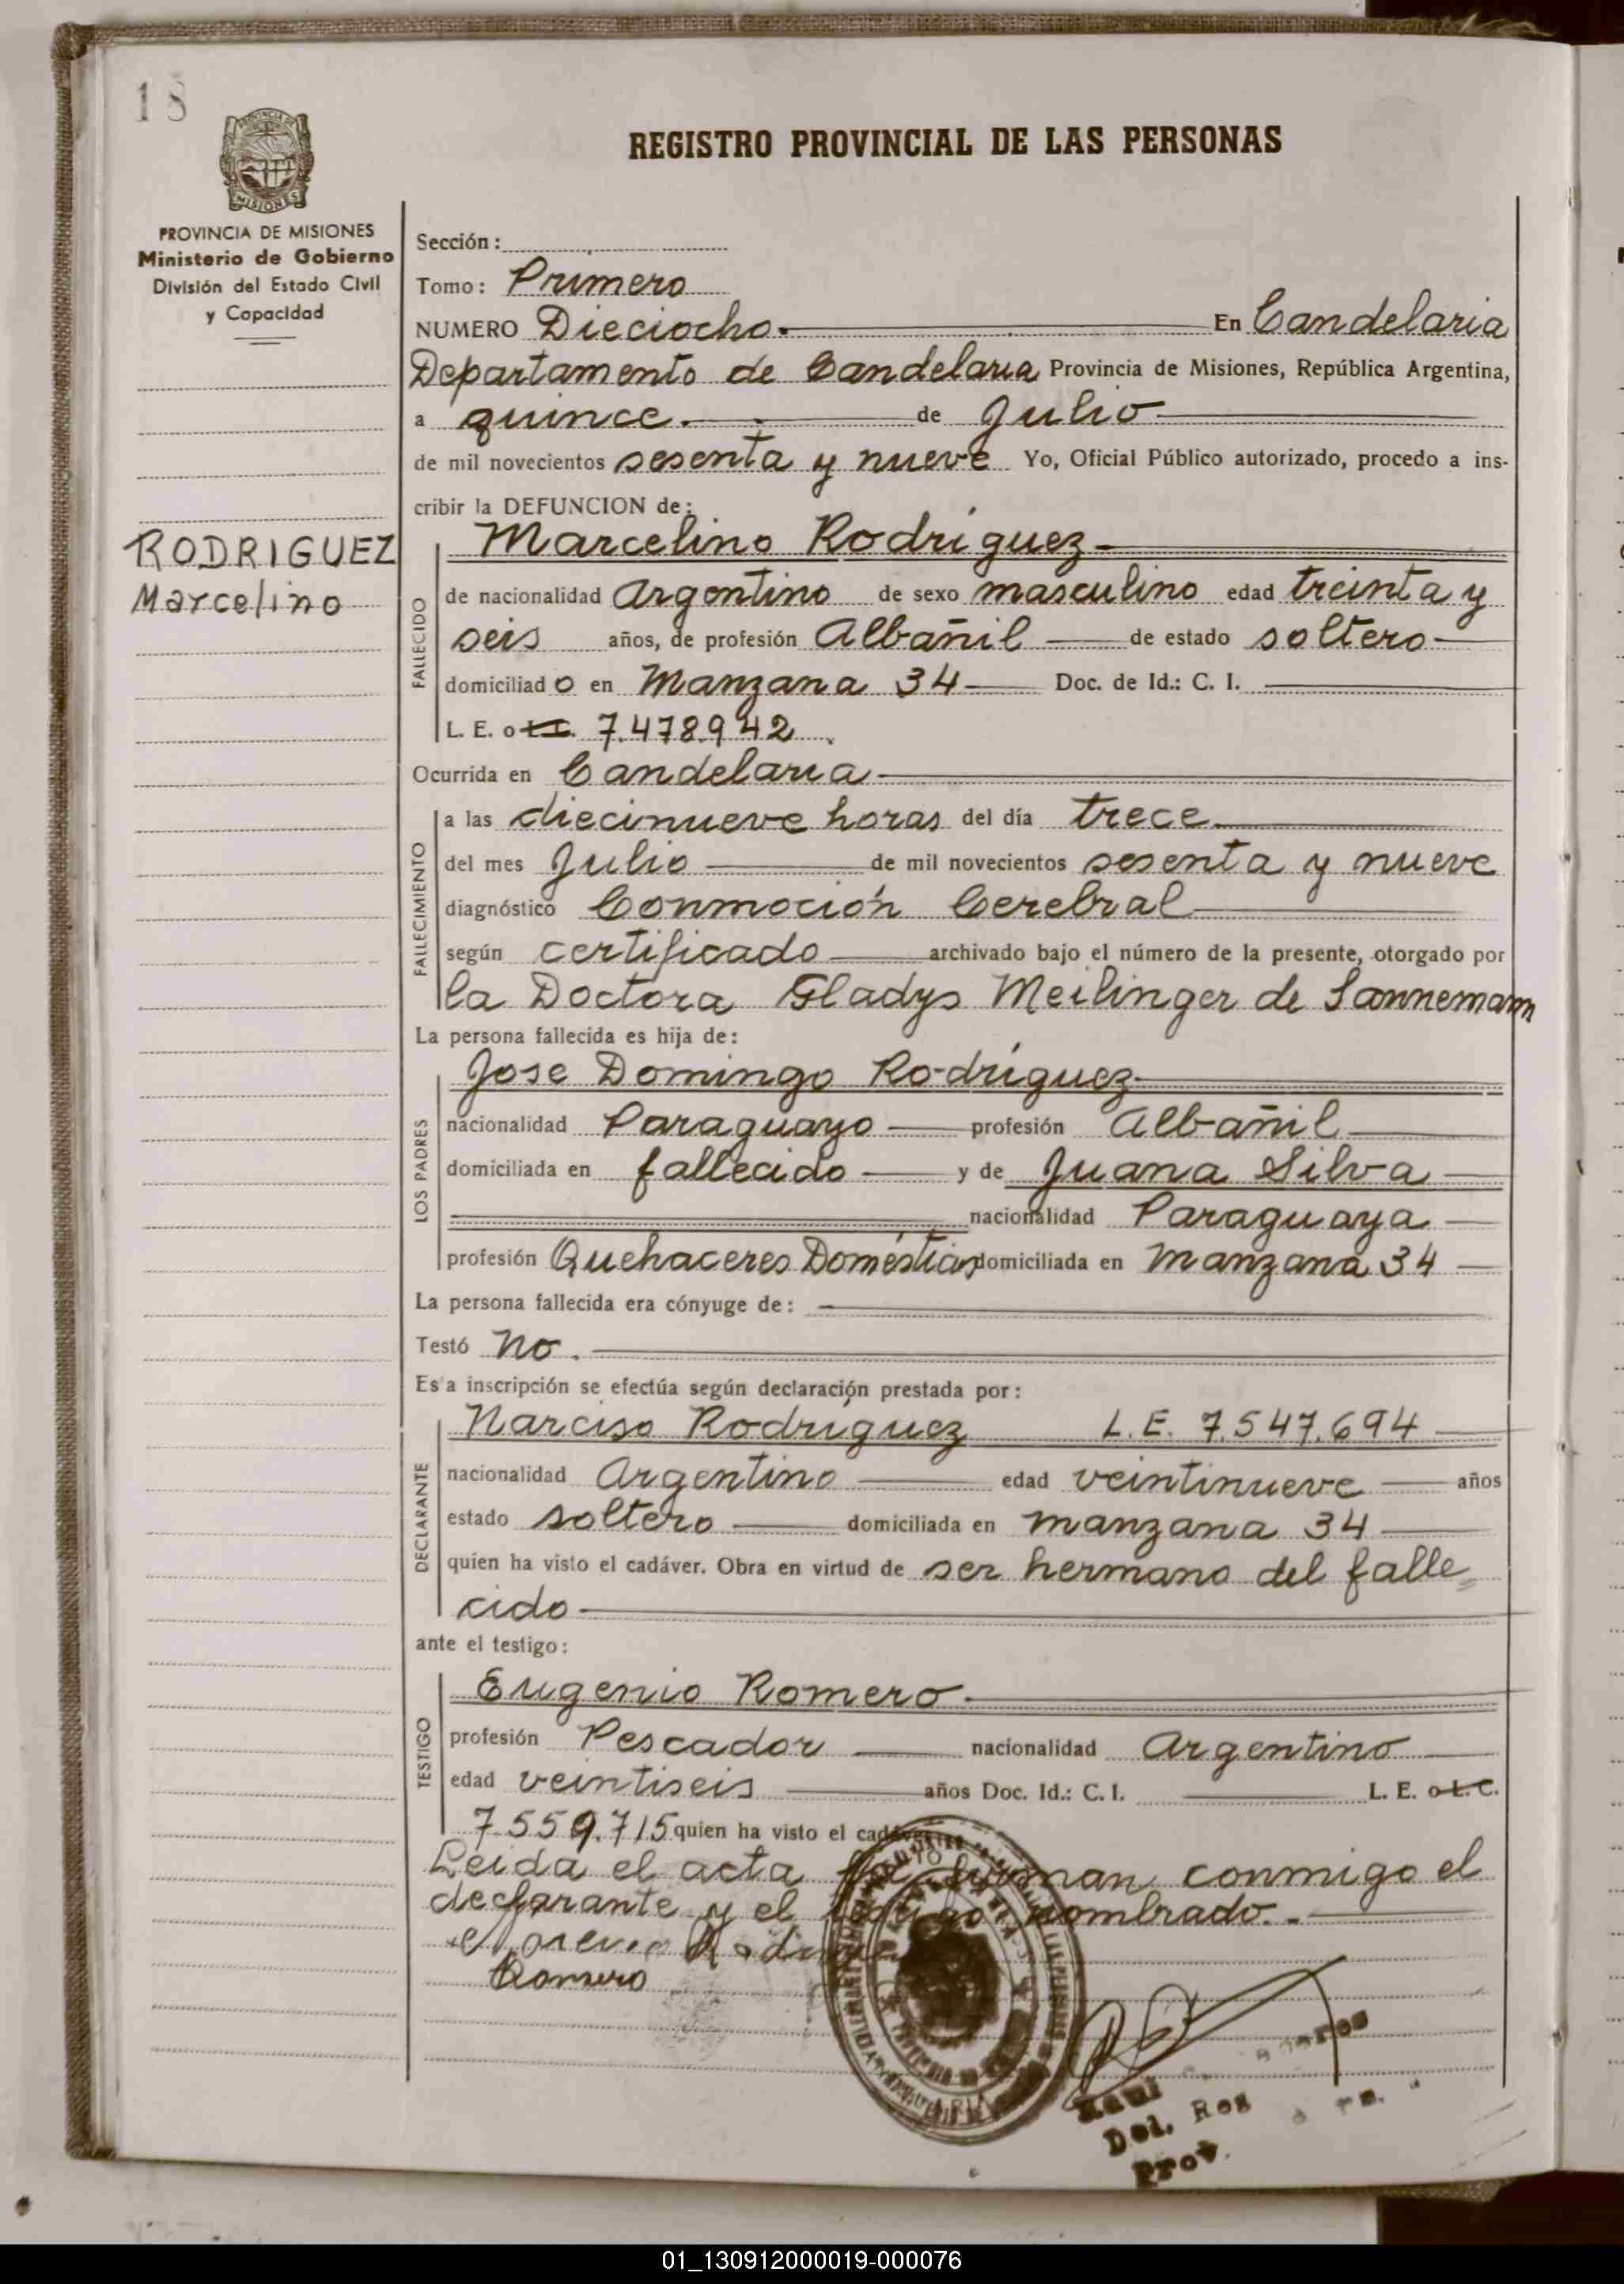 18
REGISTRO PROVINCIAL DE LAS PERSONAS
PROVINCIA DE MISIONES
Ministerio de Gobierno
División del Estado Civil
y Capacidad
RODRIGUEZ
Marcelino
Sección:
Tomo: Primero
NUMERO Dieciocho. En Candelaria
Departamento de Candelaria Provincia de Misiones, República Argentina,
a quince. de Julio
de mil novecientos sesenta y nueve Yo, Oficial Público autorizado, procedo a ins-
cribir la DEFUNCION de:
Marcelino Rodríguez
FALLECIDO
de nacionalidad Argentino de sexo masculino edad treinta y
seis años, de profesión Albañil de estado soltero
domiciliado en Manzana 34 Doc. de Id.: C. I.
L. E. o L.C. 7.478.942
Ocurrida en Candelaria
FALLECIMIENTO
a las diecinueve horas del día trece
del mes Julio de mil novecientos sesenta y nueve
diagnóstico Conmoción Cerebral
según certificado archivado bajo el número de la presente, otorgado por
la Doctora Gladys Meilinger de Sannemann
La persona fallecida es hija de:
LOS PADRES
Jose Domingo Rodríguez
nacionalidad Paraguayo profesión Albañil
domiciliada en fallecido y de Juana Silva
nacionalidad Paraguaya
profesión Quehaceres Domésticos domiciliada en Manzana 34
La persona fallecida era cónyuge de:
Testó No.
Esta inscripción se efectúa según declaración prestada por:
DECLARANTE
Narciso Rodríguez L.E. 7.547.694
nacionalidad Argentino edad veintinueve años
estado soltero domiciliada en manzana 34
quien ha visto el cadáver. Obra en virtud de ser hermano del falle
cido
ante el testigo:
TESTIGO
Eugenio Romero.
profesión Pescador nacionalidad Argentino
edad veintiseis años Doc. Id.: C. I. L. E. o L.C.
7.559.715 quien ha visto el cadáver
Leida el acta la firman conmigo el
declarante y el testigo nombrado.
Romero
Raul
Del. Reg
Prov.
01_130912000019-000076